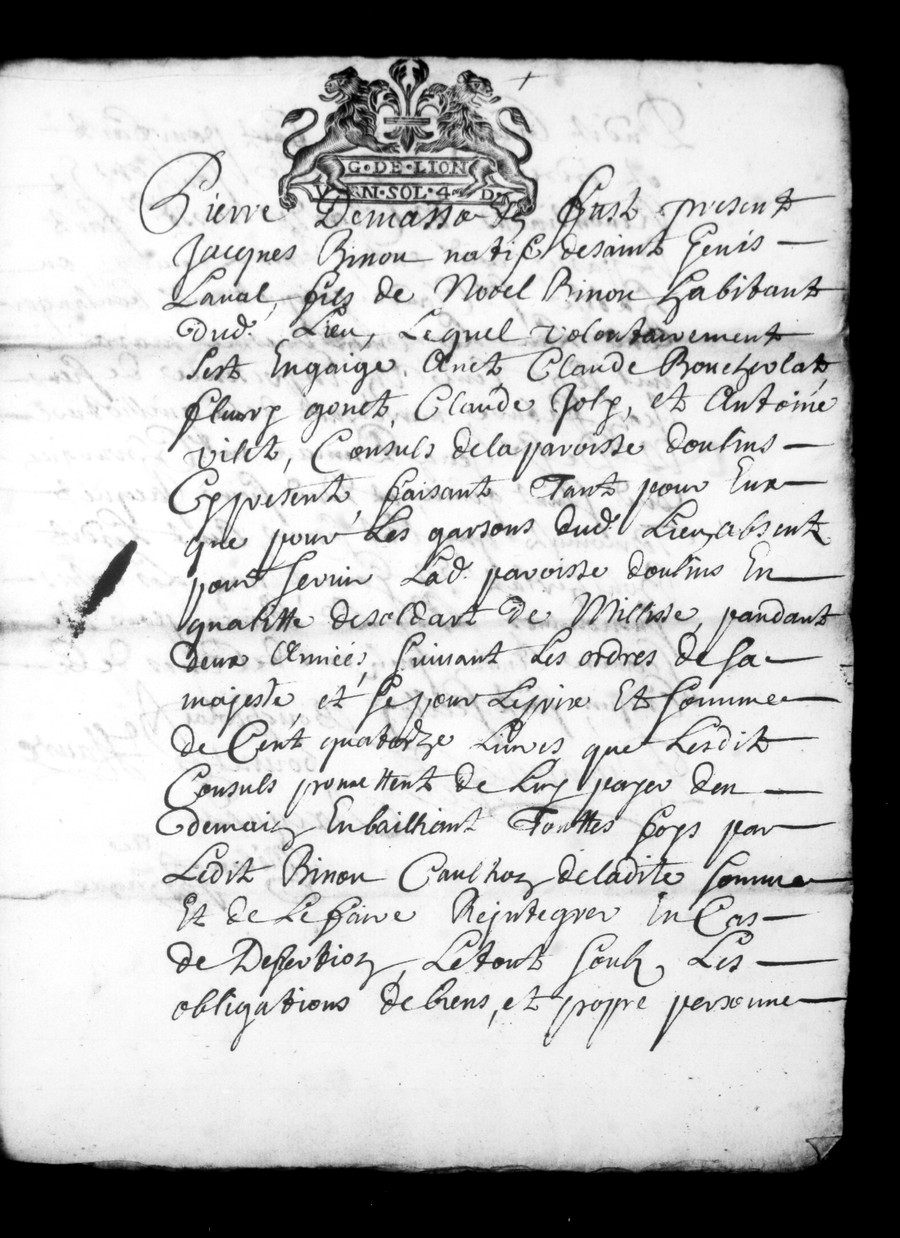 G·DE·LION
VN·SOL·4·D
Pierre Demasso fust present
Jacques Binou natif de saint Genis
Laual, fils de Noel Binou habitant
dud. Lieu, Lequel volontairement
sest Engaige auec Claude Boucharlat
fleury gonet, Claude Joly, et Antoine
vilet, Consuls de la paroisse doulins
Cy present, faisant Tant pour Eux
que pour Les garsons dud. Lieu absent
pour seruir Lad. paroisse doulins En
qualitte de soldart de Millisse, pandant
deux Annees, suiuant Les ordres de sa
majeste et se pour Le prix Et somme
de Cent quatorze Liures que Lesdit
Consuls promettent de Luy payer den
demain En bailhant Touttes foys par
Ledit Binou Caulhon de ladite somme
Et de Le faire Reintegrer En Cas
de Desertion, Le tout soubz Les
obligations de biens, et propre personne